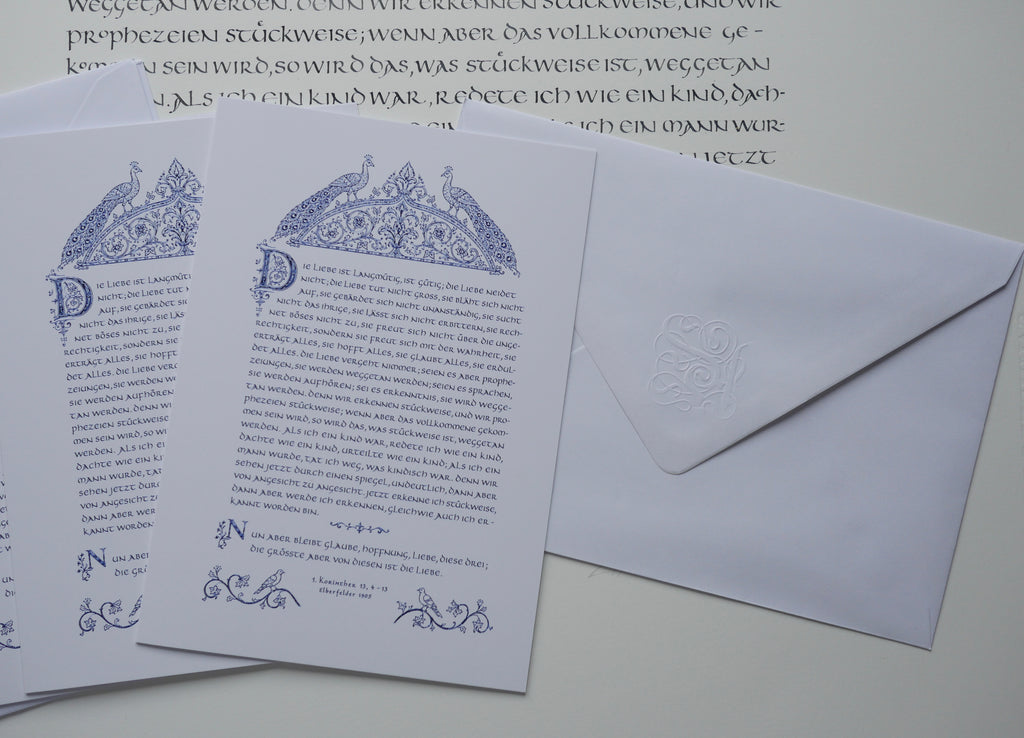 WEGGETAN WERDEN. DENN WIR ERKENNEN STÜCKWEISE, UND WIR
PROPHEZEIEN STÜCKWEISE; WENN ABER DAS VOLLKOMMENE GE-
KOMMEN SEIN WIRD, SO WIRD DAS, WAS STÜCKWEISE IST, WEGGETAN
N. ALS ICH EIN KIND WAR, REDETE ICH WIE EIN KIND, DACH-
EIN ICH EIN MANN WUR-
JETZT
DIE LIEBE IST LANGMÜTIG,
NICHT; DIE LIEBE TUT N
AUF, SIE GEBÄRDET SI
NICHT DAS IHRIGE, SIE LÄSS
NET BÖSES NICHT ZU, SIE F
RECHTIGKEIT, SONDERN SIE
ERTRÄGT ALLES, SIE HOFFT
DET ALLES. DIE LIEBE VER
ZEIUNGEN, SIE WERDEN W
SIE WERDEN AUFHÖREN;
TAN WERDEN. DENN WI
PHEZEIEN STÜCKWEISE;
MEN SEIN WIRD, SO WI
WERDEN. ALS ICH EI
DACHTE WIE EIN KI
MANN WURDE, TAT
SEHEN JETZT DURC
VON ANGESICHT ZU
DANN ABER WER
KANNT WORDEN
NUN ABER
DIE GRÖ
DIE LIEBE IST LANGMÜTIG, IST GÜTIG; DIE LIEBE NEIDET
NICHT; DIE LIEBE TUT NICHT GROSS, SIE BLÄHT SICH NICHT
AUF, SIE GEBÄRDET SICH NICHT UNANSTÄNDIG, SIE SUCHT
NICHT DAS IHRIGE, SIE LÄSST SICH NICHT ERBITTERN, SIE RECH-
NET BÖSES NICHT ZU, SIE FREUT SICH NICHT ÜBER DIE UNGE-
RECHTIGKEIT, SONDERN SIE FREUT SICH MIT DER WAHRHEIT, SIE
ERTRÄGT ALLES, SIE HOFFT ALLES, SIE GLAUBT ALLES, SIE ERDUL-
DET ALLES. DIE LIEBE VERGEHT NIMMER; SEIEN ES ABER PROPHE-
ZEIUNGEN, SIE WERDEN WEGGETAN WERDEN; SEIEN ES SPRACHEN,
SIE WERDEN AUFHÖREN; SEI ES ERKENNTNIS, SIE WIRD WEGGE-
TAN WERDEN. DENN WIR ERKENNEN STÜCKWEISE, UND WIR PRO-
PHEZEIEN STÜCKWEISE; WENN ABER DAS VOLLKOMMENE GEKOM-
MEN SEIN WIRD, SO WIRD DAS, WAS STÜCKWEISE IST, WEGGETAN
WERDEN. ALS ICH EIN KIND WAR, REDETE ICH WIE EIN KIND,
DACHTE WIE EIN KIND, URTEILTE WIE EIN KIND; ALS ICH EIN
MANN WURDE, TAT ICH WEG, WAS KINDISCH WAR. DENN WIR
SEHEN JETZT DURCH EINEN SPIEGEL, UNDEUTLICH, DANN ABER
VON ANGESICHT ZU ANGESICHT. JETZT ERKENNE ICH STÜCKWEISE,
DANN ABER WERDE ICH ERKENNEN, GLEICHWIE AUCH ICH ER-
KANNT WORDEN BIN.
NUN ABER BLEIBT GLAUBE, HOFFNUNG, LIEBE, DIESE DREI;
DIE GRÖSSTE ABER VON DIESEN IST DIE LIEBE.
1. Korinther 13, 4-13
Elberfelder 1905